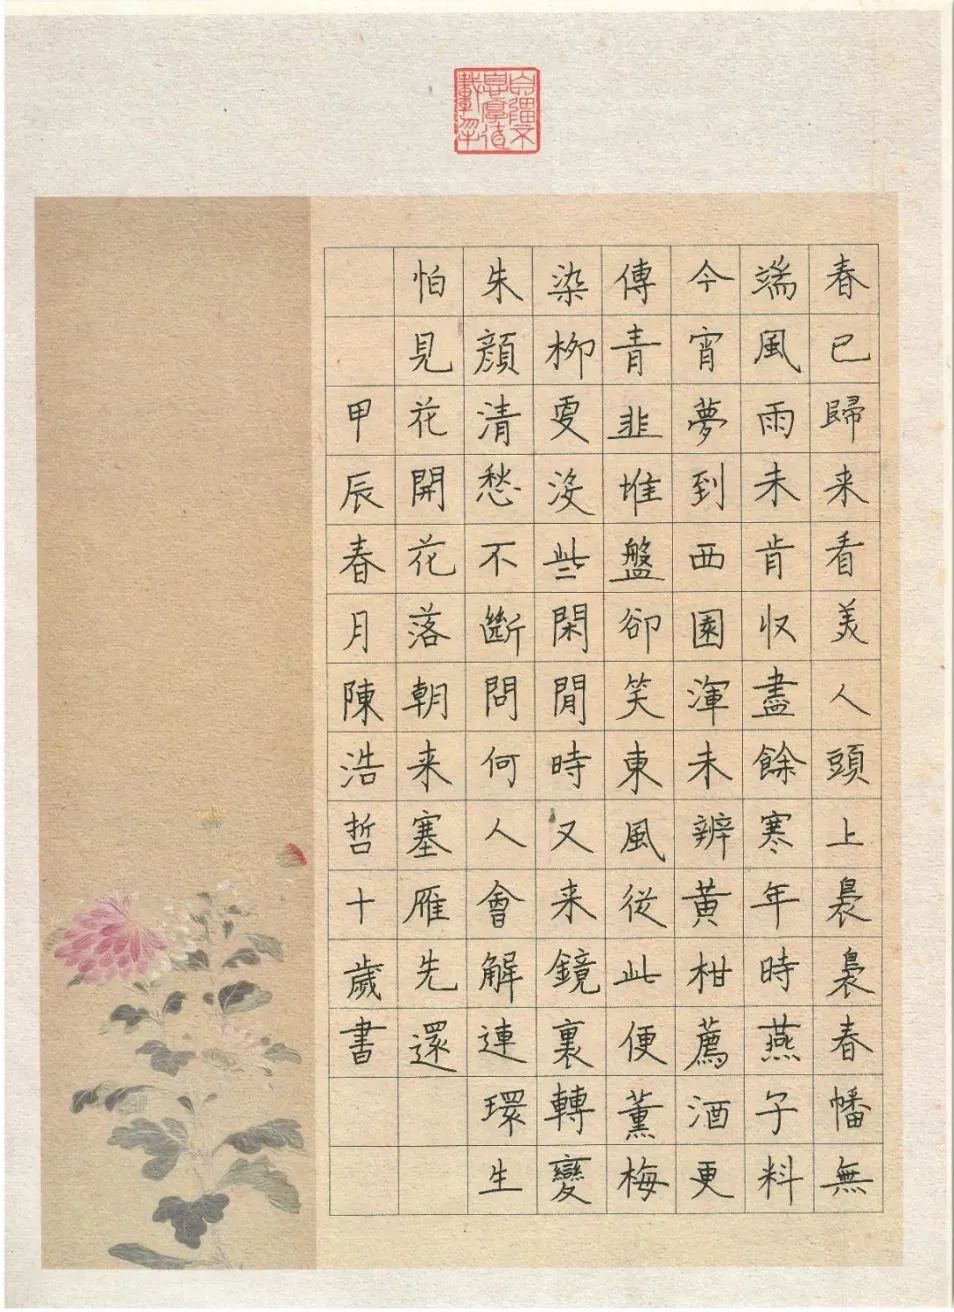 自彊不
息厚德
載物
春已歸来看美人頭上裊裊春幡無
端風雨未肯収盡餘寒年時燕子料
今宵夢到西園渾未辨黄柑薦酒更
傳青韭堆盤卻笑東風從此便薰梅
染柳更没些閑閒時又来鏡裏轉變
朱顔清愁不斷問何人會解連環生
怕見花開花落朝来塞雁先還
甲辰春月陳浩哲十歲書